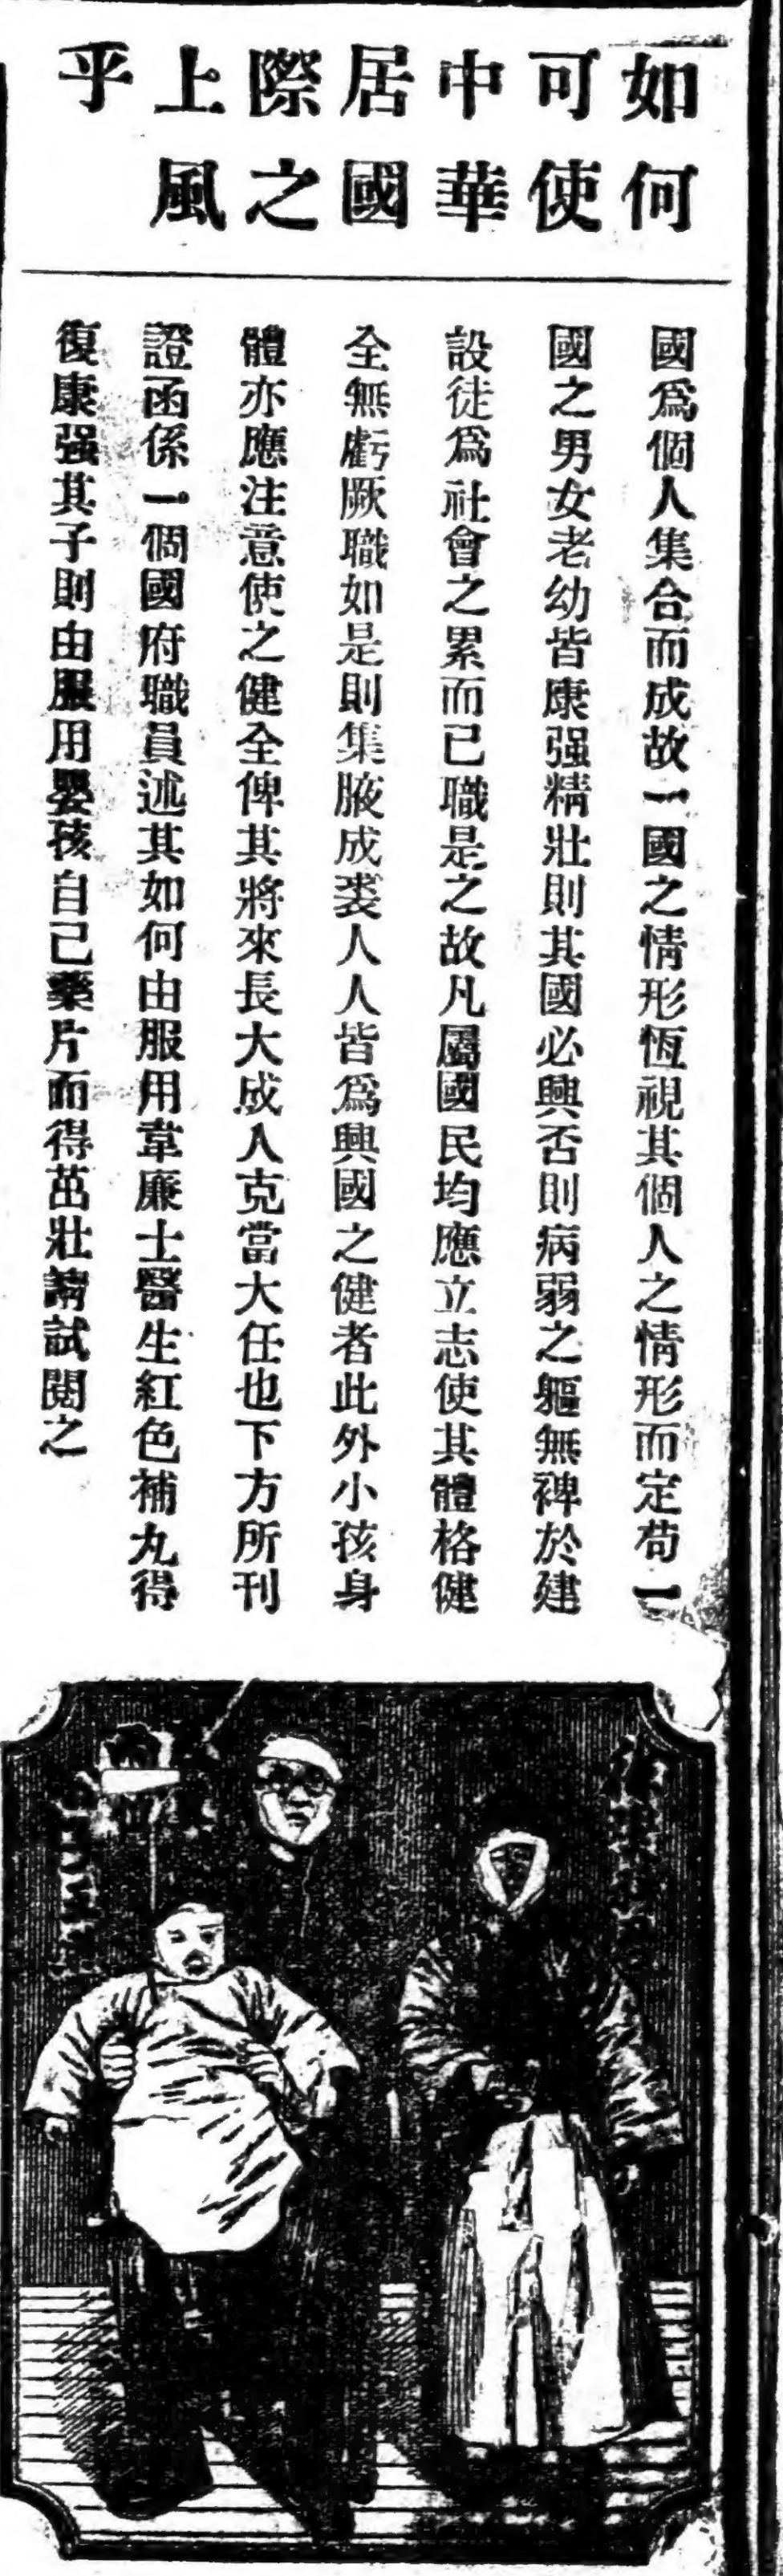 如何
可使
中華
居國
際之
上風
乎
國爲個人集合而成故一國之情形恆視其個人之情形而定苟一
國之男女老幼皆康强精壯則其國必興否則病弱之軀無裨於建
設徒爲社會之累而已職是之故凡屬國民均應立志使其體格健
全無虧厥職如是則集腋成裘人人皆爲興國之健者此外小孩身
體亦應注意使之健全俾其將來長大成人克當大任也下方所刊
證函係一個國府職員述其如何由服用韋廉士醫生紅色補丸得
復康强其子則由服用嬰孩自己藥片而得茁壯請試閱之